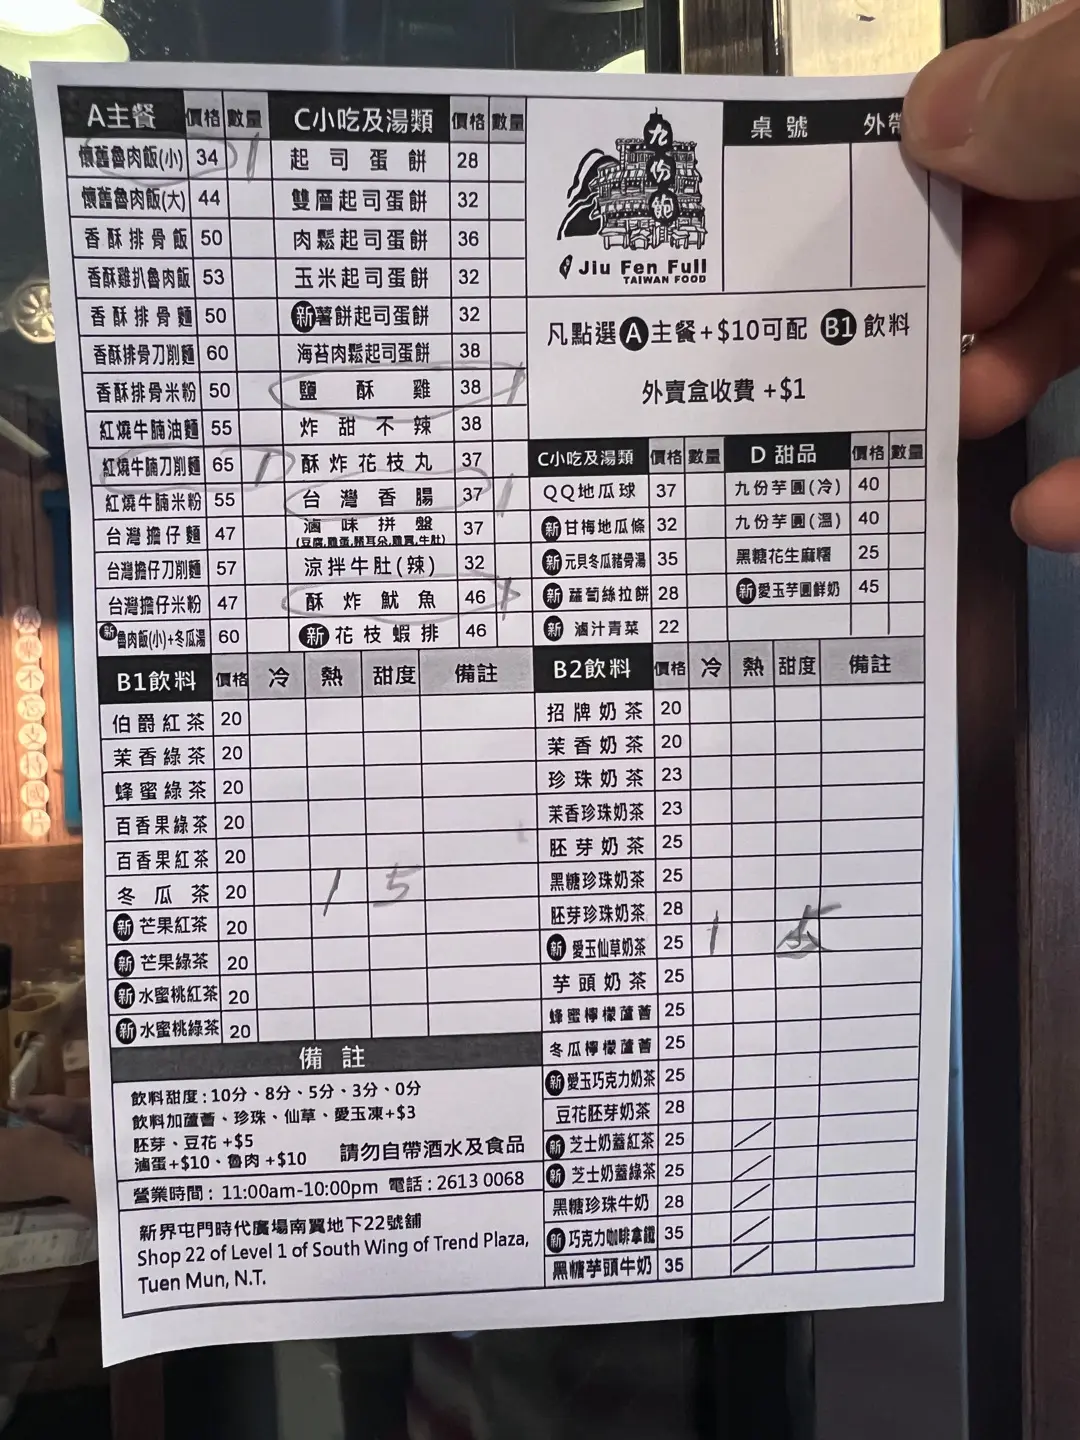 A主餐 價格 數量
懷舊魯肉飯(小) 34 1
懷舊魯肉飯(大) 44
香酥排骨飯 50
香酥雞扒魯肉飯 53
香酥排骨麵 50
香酥排骨刀削麵 60
香酥排骨米粉 50
紅燒牛腩油麵 55
紅燒牛腩刀削麵 65 1
紅燒牛腩米粉 55
台灣擔仔麵 47
台灣擔仔刀削麵 57
台灣擔仔米粉 47
新 魯肉飯(小)+冬瓜湯 60
C小吃及湯類 價格 數量
起司蛋餅 28
雙層起司蛋餅 32
肉鬆起司蛋餅 36
玉米起司蛋餅 32
新薯餅起司蛋餅 32
海苔肉鬆起司蛋餅 38
鹽酥雞 38 1
炸甜不辣 38
酥炸花枝丸 37
台灣香腸 37 1
滷味拼盤 37
(豆腐,雞蛋,豬耳朵,雞腎,牛肚)
涼拌牛肚(辣) 32
酥炸魷魚 46 1
新 花枝蝦排 46
九份飽
Jiu Fen Full
TAIWAN FOOD
桌號 外帶
凡點選A主餐+$10可配 B1飲料
外賣盒收費+$1
C小吃及湯類 價格 數量
QQ地瓜球 37
新 甘梅地瓜條 32
新 元貝冬瓜豬骨湯 35
新 蘿蔔絲拉餅 28
新 滷汁青菜 22
D 甜品 價格 數量
九份芋圓(冷) 40
九份芋圓(溫) 40
黑糖花生麻糬 25
新 愛玉芋圓鮮奶 45
B1飲料 價格 冷 熱 甜度 備註
伯爵紅茶 20
茉香綠茶 20
蜂蜜綠茶 20
百香果綠茶 20
百香果紅茶 20
冬瓜茶 20 1 5
新 芒果紅茶 20
新 芒果綠茶 20
新 水蜜桃紅茶 20
新 水蜜桃綠茶 20
B2飲料 價格 冷 熱 甜度 備註
招牌奶茶 20
茉香奶茶 20
珍珠奶茶 23
茉香珍珠奶茶 23
胚芽奶茶 25
黑糖珍珠奶茶 25
胚芽珍珠奶茶 28
新 愛玉仙草奶茶 25 1 5
芋頭奶茶 25
蜂蜜檸檬蘆薈 25
冬瓜檸檬蘆薈 25
新 愛玉巧克力奶茶 25
豆花胚芽奶茶 28
新 芝士奶蓋紅茶 25
新 芝士奶蓋綠茶 25
黑糖珍珠牛奶 28
新 巧克力咖啡拿鐵 35
黑糖芋頭牛奶 35
備註
飲料甜度:10分、8分、5分、3分、0分
飲料加蘆薈、珍珠、仙草、愛玉凍+$3
胚芽、豆花 +$5
滷蛋+$10、魯肉 +$10 請勿自帶酒水及食品
營業時間: 11:00am-10:00pm 電話:2613 0068
新界屯門時代廣場南翼地下22號舖
Shop 22 of Level 1 of South Wing of Trend Plaza,
Tuen Mun, N.T.